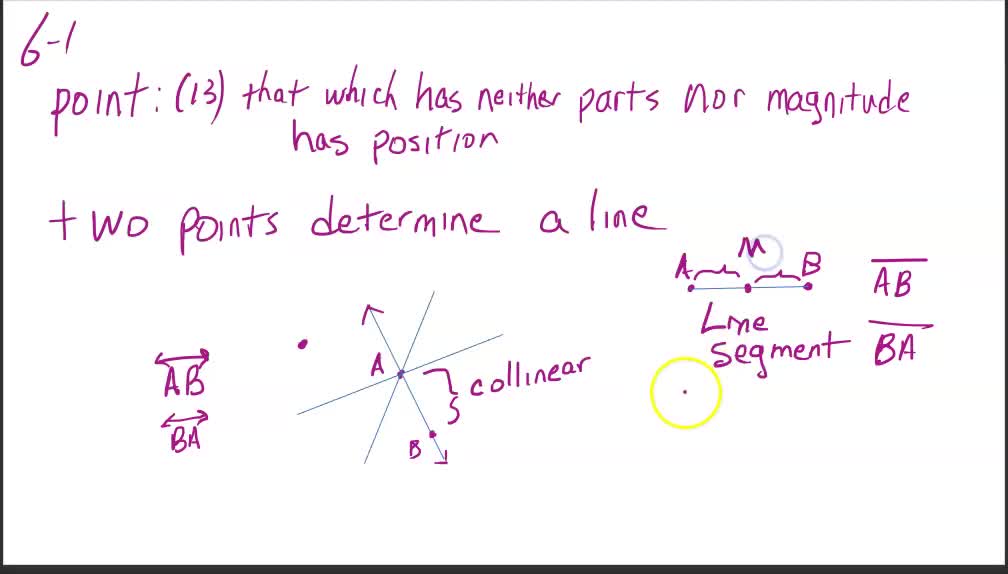 6-1
point: (13) that which has neither parts nor magnitude
has position
two points determine a line
A M B
AB
Line
segment
BA
AB
BA
A
collinear
B